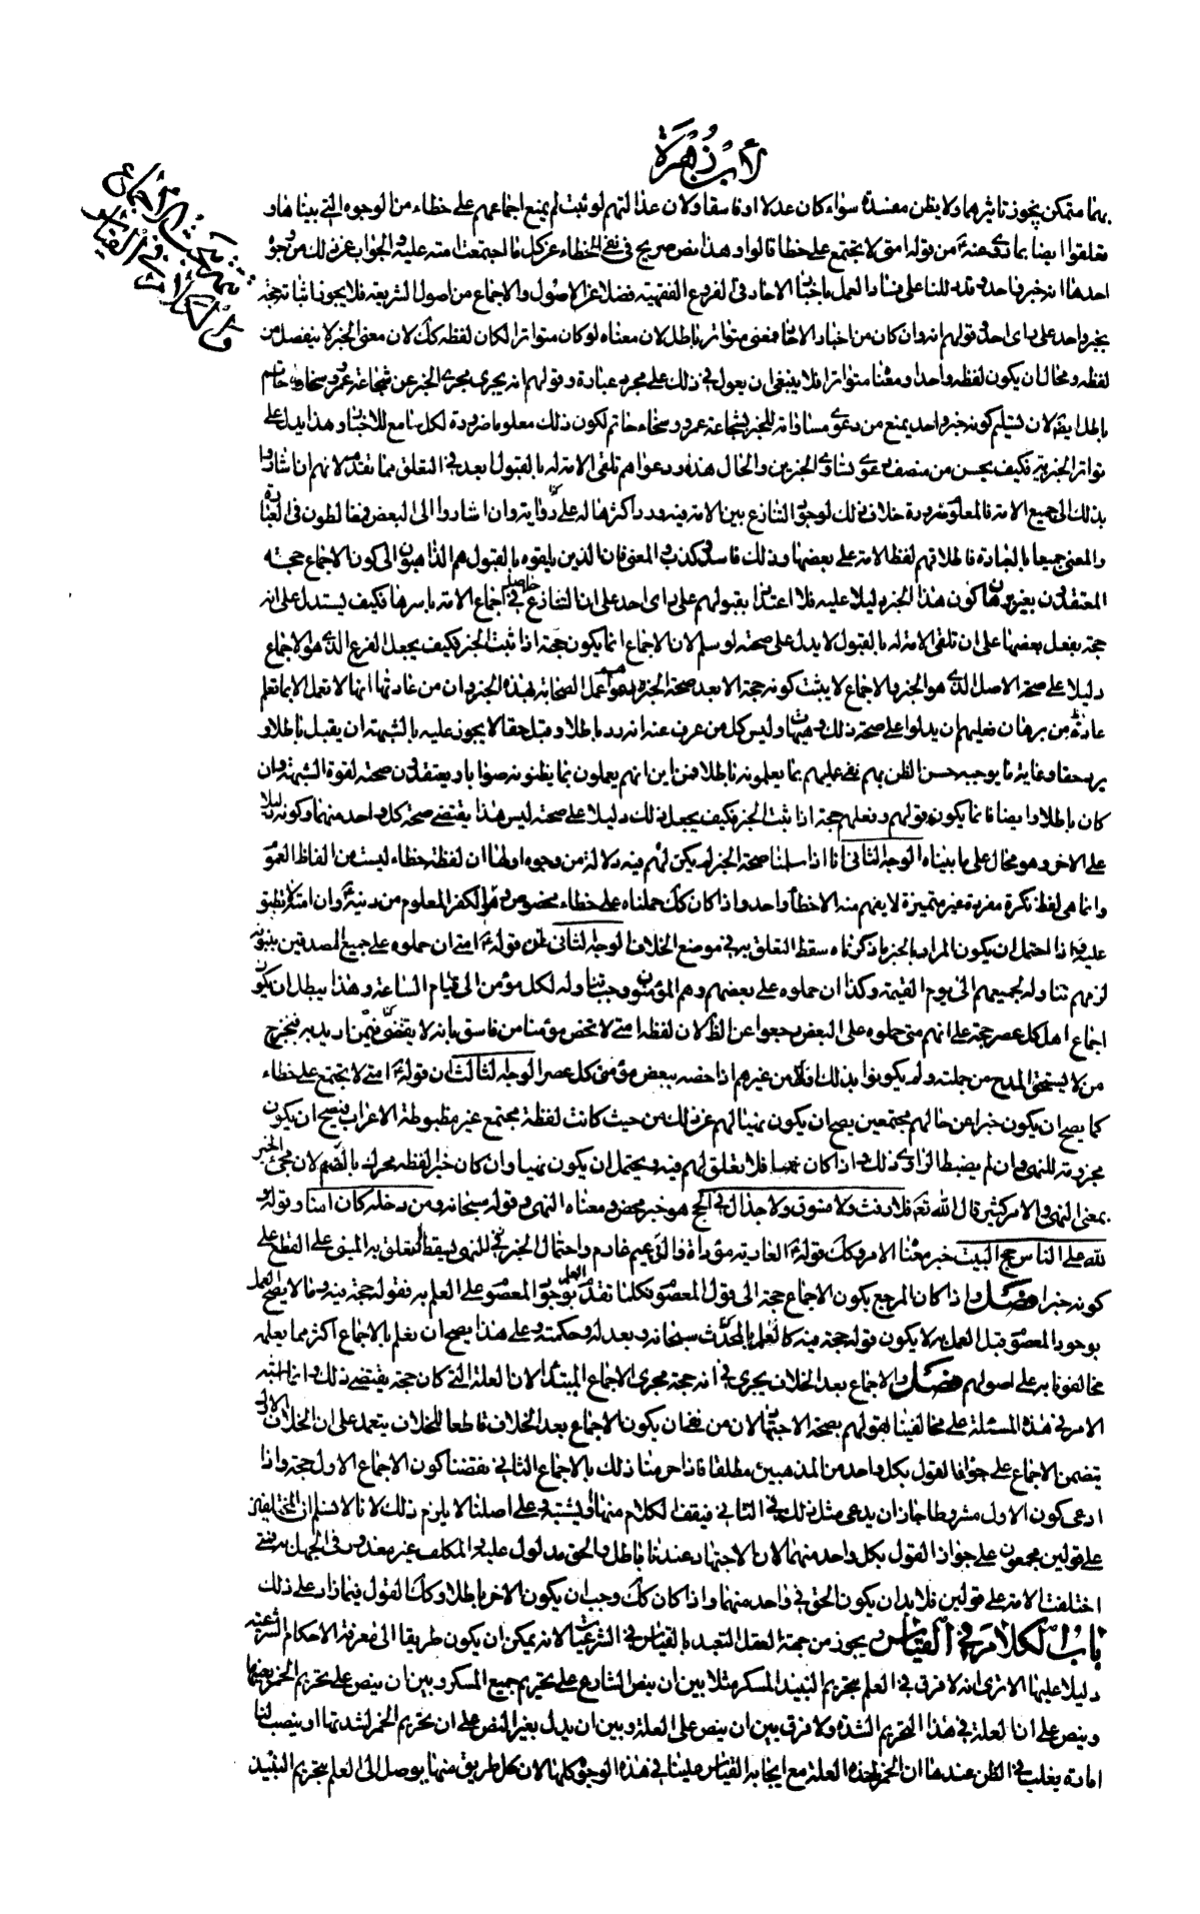 لابن زهرة
تمت بحث الاجماع
والكلام في القياس
بهما متمكن يجوز تاثيرهما ولا يظن مفسدة سواء كان عدلا او فاسقا ولان عدالتهم لو ثبت لم يمنع اجماعهم على خطاء من الوجوه التي بيناها و
تعلقوا ايضا بما روى عنه من قوله امتى لا تجتمع على خطا قالوا وهذا نص صريح في نفى الخطاء عن كل ما اجتمعت امته عليه والجواب عن ذلك من وجوه
احدها انه خبر واحد وقد دللنا على فساد العمل باخبار الاحاد في الفروع الفقهية فضلا عن الاصول والاجماع من اصول الشريعة فلا يجوز اثباته حجة
بخبر واحد على راى احد وقولهم انه وان كان من اخبار الاحاد فمعنى متواتر باطل لان معناه لو كان متواترا لكان لفظه كك لان معنى الخبر لا ينفصل من
لفظه ومحال ان يكون لفظه واحدا ومعناه متواترا فلا ينبغى ان يعول في ذلك على مجرد عبادة وقولهم انه يجرى مجرى الخبر عن شجاعة عمرو وسخاء حاتم
باطل ايضا لان تسليم كونه خبر واحد يمنع من دعوى مساواته للخبر بشجاعة عمرو وسخاء حاتم لكون ذلك معلوما ضرورة لكل سامع للاخبار وهذا يدل على
تواتر الخبر به فكيف يحسن من منصف دعوى تساوى الخبرين والحال هذه ودعواهم تلقى الامة له بالقبول بعد في التعلق مما تقدم لانهم ان اشاروا
بذلك الى جميع الامة فالمعلوم ضرورة خلاف ذلك لوجود التنازع بين الامة فيه ورد اكثرها له على رواية وان اشاروا الى البعض فغالطون في العبارة
والمعنى جميعا بالعبارة فاطلاقهم لفظ الامة على بعضها وذلك فاسد وكذب والمعنى فان الذين تلقوه بالقبول هم الذاهبون الى كون الاجماع حجة
المعتقدون بغير برهان كون هذا الخبر دليلا عليه فلا اعتداد بقبولهم على راى احد على ان التنازع حاصل في اجماع الامة باسرها فكيف يستدل على انه
حجة بفعل بعضها على ان تلقى الامة له بالقبول لا يدل على صحته لو سلم لان الاجماع انما يكون حجة اذا ثبت الخبر فكيف يجعل الفرع الذى هو الاجماع
دليلا على صحة الاصل الذى هو الخبر والاجماع لا يثبت كونه حجة الا بعد صحة الخبر عمل الصحابة بهذه الخبر وان من عادتها انها لا تعمل الا بما تعلم
عادة من برهان فعليهم ان يدلوا على صحة ذلك وهيهات وليس كل من عرف عنه انه رد باطلا وقبل حقا لا يجوز عليه بالشبهة ان يقبل باطلا و
يرد حقا وغاية ما يوجبه حسن الظن بهم نفى عليهم بما يعلمونه باطلا فمن اين انهم يعملون بما يظنونه صوابا ويعتقدون صحته لقوة الشبهة وان
كان باطلا وايضا فانما يكون قولهم وفعلهم حجة اذا ثبت الخبر فكيف يجعل ذلك دليلا على صحته اليس هذا يقتضى صحة كل واحد منهما وكونه دليلا
على الاخر وهو محال على ما بيناه الوجه الثانى انا اذا سلمنا صحة الخبر لم يكن لهم فيه دلالة من وجوه اولها ان لفظة خطاء ليست من الفاظ العموم
وانما هى لفظ نكرة مفردة غير متميزة لا يفهم منه الا خطأ واحد واذا كان كك حملناه على خطاء مخصوص وهو الكفر المعلوم من دينه وان امته لا تطبق
عليه واذا احتمل ان يكون المراد بالخبر ما ذكرناه سقط التعلق به في موضع الخلاف الوجه الثانى ان قوله امتى ان حملوه على جميع المصدقين بنبوته
لزمهم تناوله لجميعهم الى يوم القيمة وكذا ان حملوه على بعضهم وهم المؤمنون وجب تناوله لكل مؤمن الى قيام الساعة وهذا يبطل ان يكون
اجماع اهل كل عصر حجة على انهم متى حملوه على البعض رجعوا عن الظ لان لفظه امتى لا يخص مؤمنا من فاسق بانه لا يقتضى فيمن اريد به فيخرج
من لا يستحق المدح من جملته ولم يكونوا بذلك اولى من غيرهم اذا خصه ببعض مؤمنى كل عصر الوجه الثالث ان قوله امتى لا تجتمع على خطاء
كما يصح ان يكون خبرا عن حالهم مجتمعين يصح ان يكون نهيا لهم عن ذلك من حيث كانت لفظة مجتمع غير مضبوطة الاعراب فيصح ان يكون
مجزومة للنهى وان لم يضبط الراوى ذلك واذا كان نهيا فلا تعلق لهم فيه ويحتمل ان يكون نهيا وان كان خبرا لفظه محرك بالضم لان مجئ الخبر
بمعنى النهى والامر كثير قال الله تعم فلا رفث ولا فسوق ولا جدال في الحج هو خبر محض ومعناه النهى وقوله سبحانه ومن دخله كان امنا وقوله و
لله على الناس حج البيت خبر معناه الامر وكك قوله العارية مؤداة والزعيم غارم واحتمال الخبر للنهى يسقط التعلق به المبنى على القطع على
كونه خبرا فصل واذا كان المرجع بكون الاجماع حجة الى قول المعصوم فكلما تقدم العلم بوجود المعصوم على العلم به فقوله حجة فيه وما لا يصح العمل
بوجود المعصوم قبل العلم به لا يكون قوله حجة فيه كالعلم بالمحدث سبحانه وبعدله وحكمته وعلى هذا يصح ان يعلم بالاجماع اكثر مما يعلمه
مخالفونا به على اصولهم فصل والاجماع بعد الخلاف يجرى في انه حجة مجرى الاجماع المبتدا لان العلة التى كان حجة يقتضى ذلك وانما اشتبه
الامر في هذه المسئلة على مخالفينا لقولهم بصحة الاجتهاد لان من نفى ان يكون الاجماع بعد الخلاف قاطعا للخلاف يتعمد على ان الخلاف الاول
يتضمن الاجماع على جواز القول بكل واحد من المذهبين مطلقا فاذا حرمنا ذلك بالاجماع الثانى نقضنا كون الاجماع الاول حجة واذا
ادعى كون الاول مشروطا جاز ان يدعى مثل ذلك في الثانى فيقف الكلام منها ويشتبه وعلى اصلنا لا يلزم ذلك لانا لا نسلم ان المختلفين
على قولين مجمعون على جواز القول بكل واحد منهما لان الاجتهاد عندنا باطل والحق مدلول عليه والمكلف غير معذور في الجهل به فمتى
اختلفت الامة على قولين فلا بد ان يكون الحق في واحد منهما واذا كان كك وجب ان يكون الاخر باطلا وكك القول فيما زاد على ذلك
باب الكلام في القياس ويجوز من جهة العقل التعبد بالقياس في الشرعيات لانه يمكن ان يكون طريقا الى معرفة الاحكام الشرعية
دليلا عليها الا ترى انه لا فرق في العلم بتحريم النبيذ المسكر مثلا بين ان ينص الشارع على تحريم جميع المسكر وبين ان ينص على تحريم الخمر بعينها
وينص على ان العلة في هذا التحريم الشدة ولا فرق بين ان ينص على العلة وبين ان يدل بغير النص على ان تحريم الخمر لشدتها او ينصب لنا
امارة يغلب في الظن عندها ان الخمر لهذه العلة مع ايجابه القياس علينا في هذه الوجوه كلها لان كل طريق منها يوصل الى العلم بتحريم النبيذ